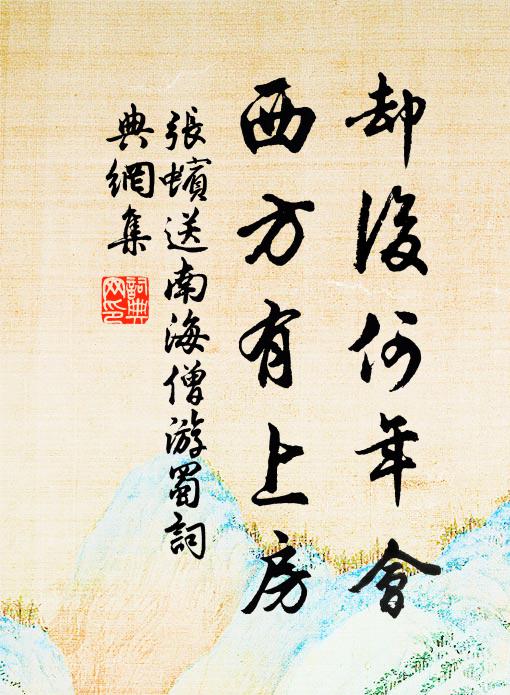 却後何年會
西方有上房
張蠙送南海僧游蜀詞
典網集
詞典
网印